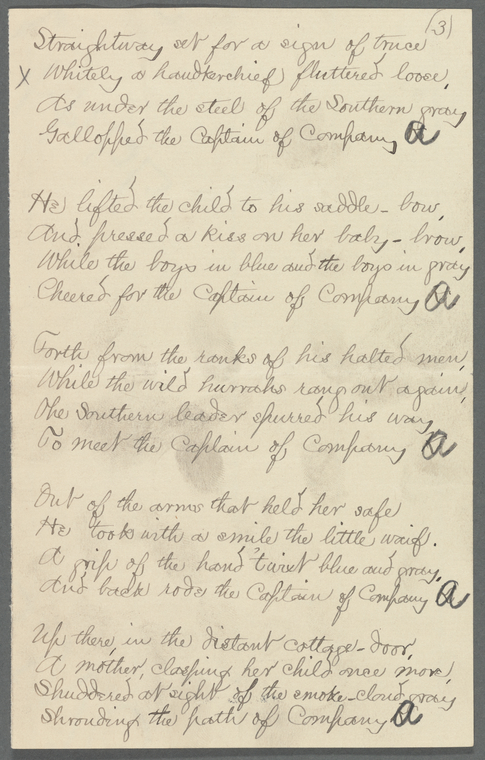 (3)
Straightway set for a sign of truce
X Whitely a handkerchief fluttered loose,
As under the steel of the Southern gray
Gallopped the Captain of Company A
He lifted the child to his saddle-bow,
And pressed a kiss on her baby-brow,
While the boys in blue and the boys in gray
Cheered for the Captain of Company A
Forth from the ranks of his halted men,
While the wild hurrahs rang out again,
The Southern leader spurred his way
To meet the Captain of Company A
Out of the arms that held her safe
He took with a smile the little waif.
A grip of the hand 'twixt blue and gray,
And back rode the Captain of Company A
Up there in the distant cottage-door,
A mother, clasping her child once more,
Shuddered at sight of the smoke-cloud gray
Shrouding the path of Company A